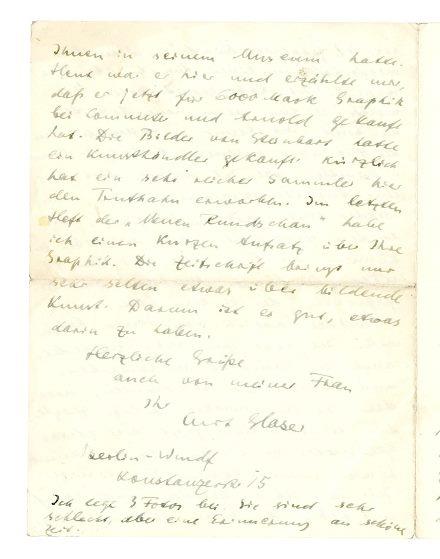 Ihnen in seinem Museum hatte.
Heut war er hier und erzählte mir,
daß er jetzt für 6000 Mark Graphik
bei Commeter und Arnold gekauft
hat. Die Bilder von hatte
ein Kunsthändler gekauft. Kürzlich
hat ein sehr reicher Sammler hier
den Truthahn erworben. Im letzten
Heft der „Neuen Rundschau" habe
ich einen kurzen Aufsatz über Ihre
Graphik. Die Zeitschrift bringt nur
sehr selten etwas über bildende
Kunst. Darum ist es gut, etwas
darin zu haben.
Herzliche Grüße
auch von meiner Frau
Ihr
Curt Glaser
Berlin-Wmdf
Konstanzerstr 15
Ich lege 3 Fotos bei. Sie sind sehr
schlecht, aber eine Erinnerung an schöne
Zeit.